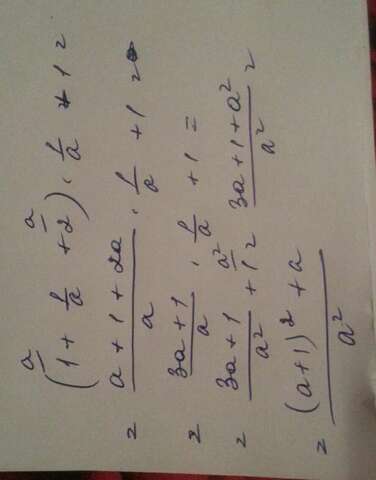 (1 + 1/a + 2) · 1/a + 1 =
= (a + 1 + 2a)/a · 1/a + 1 =
= (3a + 1)/a · 1/a + 1 =
= (3a + 1)/a² + 1 = (3a + 1 + a²)/a² =
= ((a+1)² + a)/a²